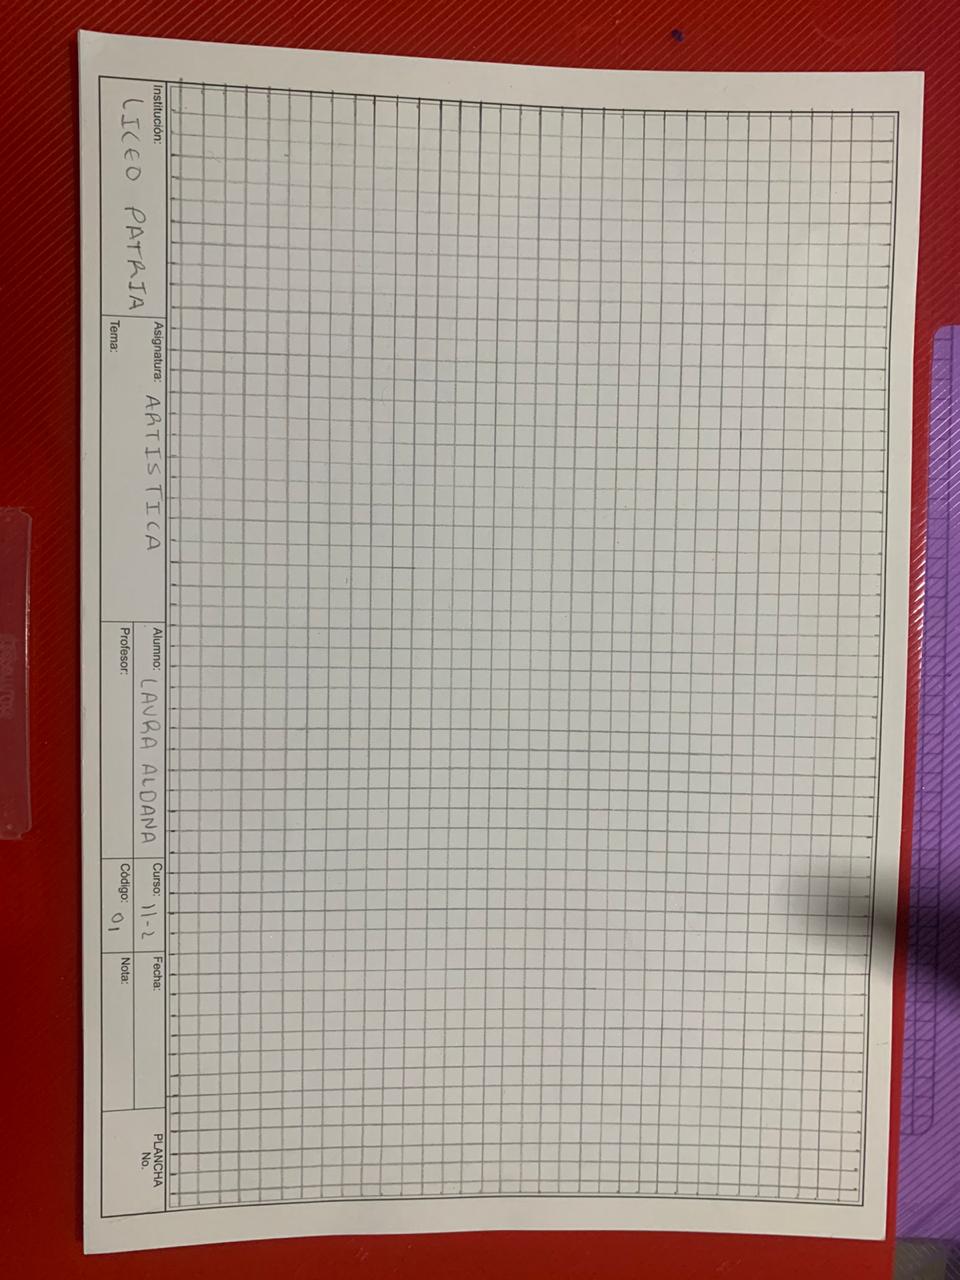 Institución: LICEO PATRIA
Asignatura: ARTISTICA
Tema:
Alumno: LAURA ALDANA
Profesor:
Curso: 11-2
Código: 01
Fecha:
Nota:
PLANCHA
No.